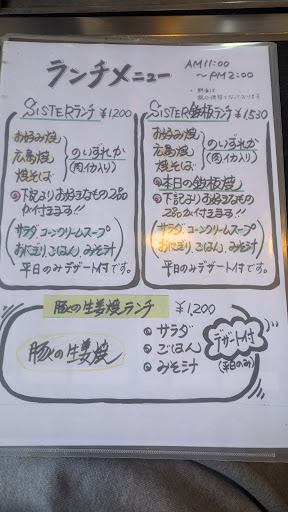 ランチメニュー
AM11:00
～PM2:00
SISTERランチ ¥1200
お好み焼
広島焼
焼そば
のいずれか
(肉イカ入り)
下記よりお好きなもの2品
が付きます!!
(サラダ、コーンクリームスープ
おにぎり、ごはん、みそ汁)
平日のみデザート付です。
SISTER鉄板ランチ ¥1530
お好み焼
広島焼
焼そば
のいずれか
(肉イカ入り)
本日の鉄板焼
下記よりお好きなもの
2品が付きます!!
(サラダ、コーンクリームスープ
おにぎり、ごはん、みそ汁)
平日のみデザート付です。
豚の生姜焼ランチ ¥1,200
豚の生姜焼
サラダ
ごはん
みそ汁
デザート付
(平日のみ)